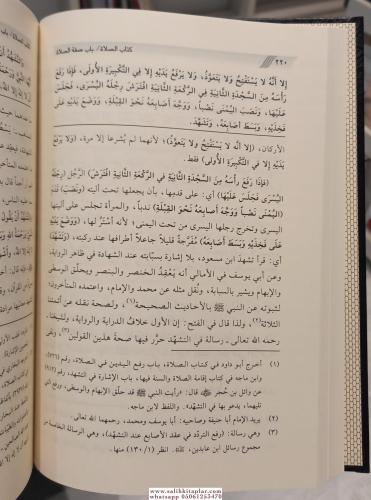 كتاب الصلاة/ باب صفة الصلاة
٢٢٠
إلا أنَّه لا يَستفتِحُ ولا يَتعوَّذُ، ولا يَرفَعُ يَدَيْهِ إلا في التَّكبيرَةِ الأُولى، فَإذَا رَفَعَ
رَأسَهُ مِنَ السَّجْدَةِ الثَّانِيَةِ في الرَّكعَةِ الثَّانِيَةِ افْتَرَشَ رِجْلَهُ اليُسْرَى، فَجَلَسَ
عَلَيْهَا، وَنَصَبَ اليُمْنَى نَصْبًا، وَوَجَّهَ أَصَابِعَهُ نَحْوَ القِبْلَةِ، وَوَضَعَ يَدَيهِ عَلَى
فَخِذَيْهِ، وَبَسَطَ أَصَابِعَهُ، وَتَشَهَّدَ.
الأركان، (إلا أنه لا يَستفتِحُ ولا يتعوَّذُ)؛ لأنهما لم يُشرعا إلا مرة، (ولا يرفَعُ
يَدَيْهِ إلا في التَّكبيرةِ الأُولى) فقط.
(فإذا رَفَعَ رأسَهُ مِنَ السَّجْدَةِ الثَّانيَةِ في الرَّكعَةِ الثَّانيَةِ افْتَرَشَ) الرَّجلُ (رِجلَهُ
اليُسرَى فَجَلَسَ عَلَيْهَا) أي: على قدمِها، بأن يجعلها تحت أليته (ونَصَبَ) قدمَ
(اليُمنَى نَصْبًا وَوَجَّهَ أَصَابِعَهُ نَحْوَ القِبْلَةِ) ندباً، والمرأة تجلس على أليتها
اليسرى وتخرج رجلها اليسرى من تحت اليمنى؛ لأنه أستَرُ لها، (وَوَضَعَ يَدَيْهِ
عَلى فَخِذَيْهِ وَبَسَطَ أَصَابِعَهُ) مُفَرَّجةً قليلاً جاعلاً أطرافها عند ركبتيه، (وَتَشَهَّدَ)
أي: قرأ تشهدَ ابن مسعود، بلا إشارة بسبَّابته عند الشهادة في ظاهر الرواية،
وعن أبي يوسف في الأمالي أنه يَعْقِدُ الخنصر والبنصر ويحلّق الوسطى
والإبهام ويشير بالسبابة، ونُقل مثله عن محمد والإمام، واعتمده المتأخرون؛
لثبوته عن النبي ﷺ بالأحاديث الصحيحة(١)، ولصحة نقله عن أئمتنا
الثلاثة(٢)، ولذا قال في الفتح: إن الأول خلافُ الدراية والرواية، ولشيخنا
رحمه الله تعالى رسالة في التشهُّد حرَّر فيها صحةَ هذين القولين(٣)،
(١) أخرج أبو داود في كتاب الصلاة، باب رفع اليدين في الصلاة، رقم
وابن ماجه في كتاب إقامة الصلاة والسنة فيها، باب الإشارة في التشهد، رقم
عن وائل بن حُجر قال: رأيت النبي ﷺ قد حلّق الإبهام والوسطى، ورفع التي
تليهما، يدعو بها في التشهد. واللفظ لابن ماجه.
(٢) يريد الإمام أبا حنيفة وصاحبيه: أبا يوسف ومحمد، رحمهما الله تعالى.
(٣) وهي رسالة: (رفع التردّد في عقد الأصابع عند التشهد)، وهي الرسالة الخامسة من
مجموع رسائل ابن عابدين، انظر (١/١٣٠) منها.
www.salihkitaplar.com
whatsapp 05061253470